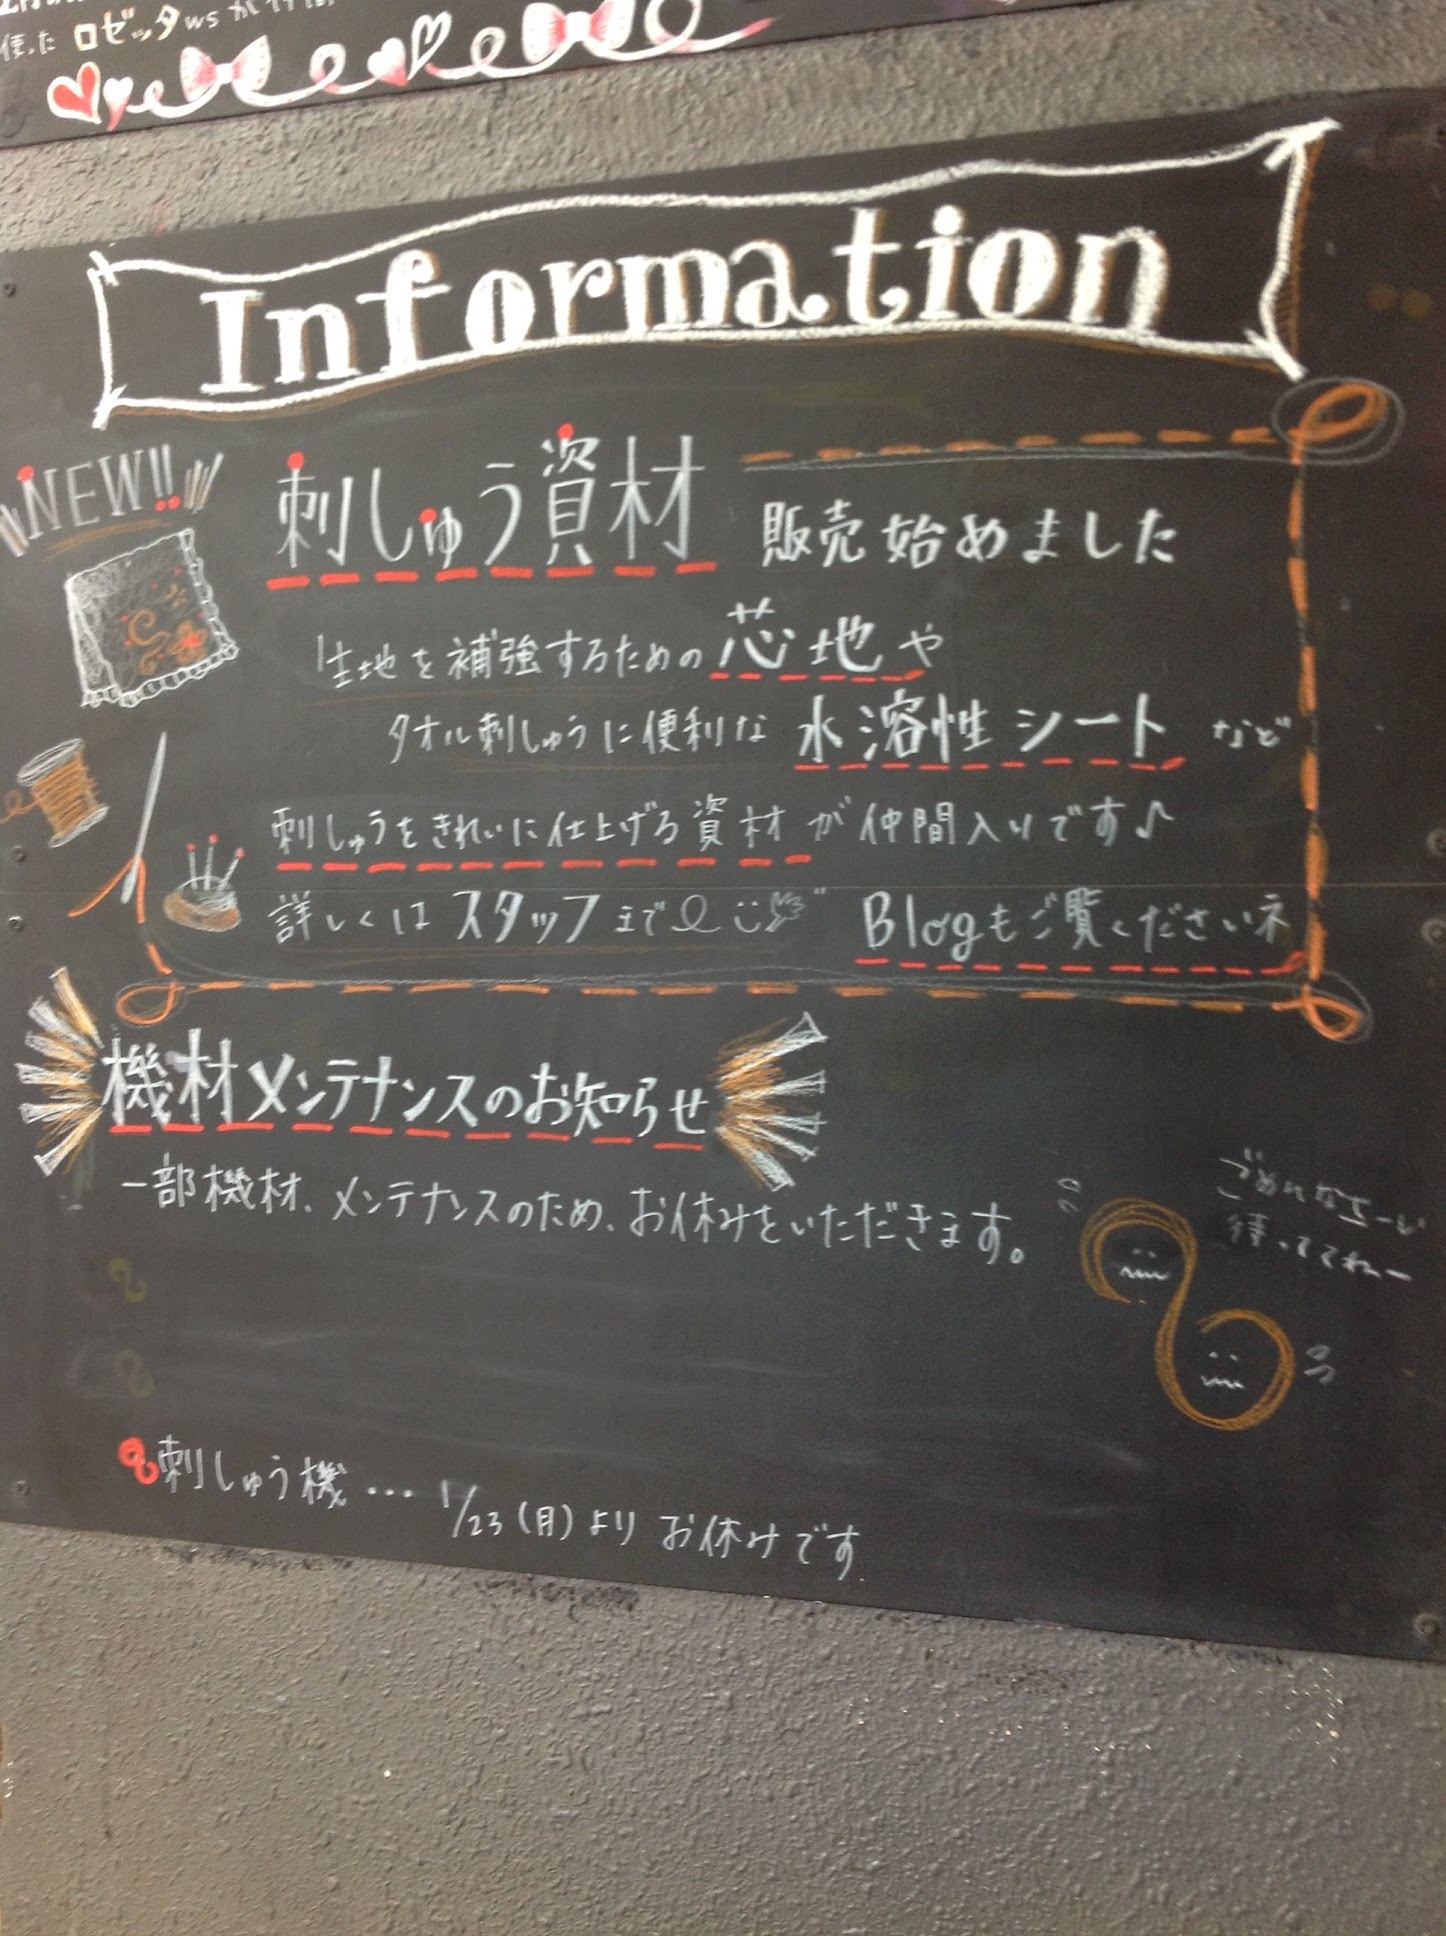 使った ロゼッタwsが
Information
NEW!!
刺しゅう資材 販売始めました
生地を補強するための芯地や
タオル刺しゅうに便利な 水溶性シート など
刺しゅうをきれいに仕上げる資材が仲間入りです♪
詳しくはスタッフまで Blogもご覧くださいネ
機材メンテナンスのお知らせ
一部機材、メンテナンスのため、お休みをいただきます。
ごめんなさーい
待っててねー
刺しゅう機… 1/23(月)より お休みです